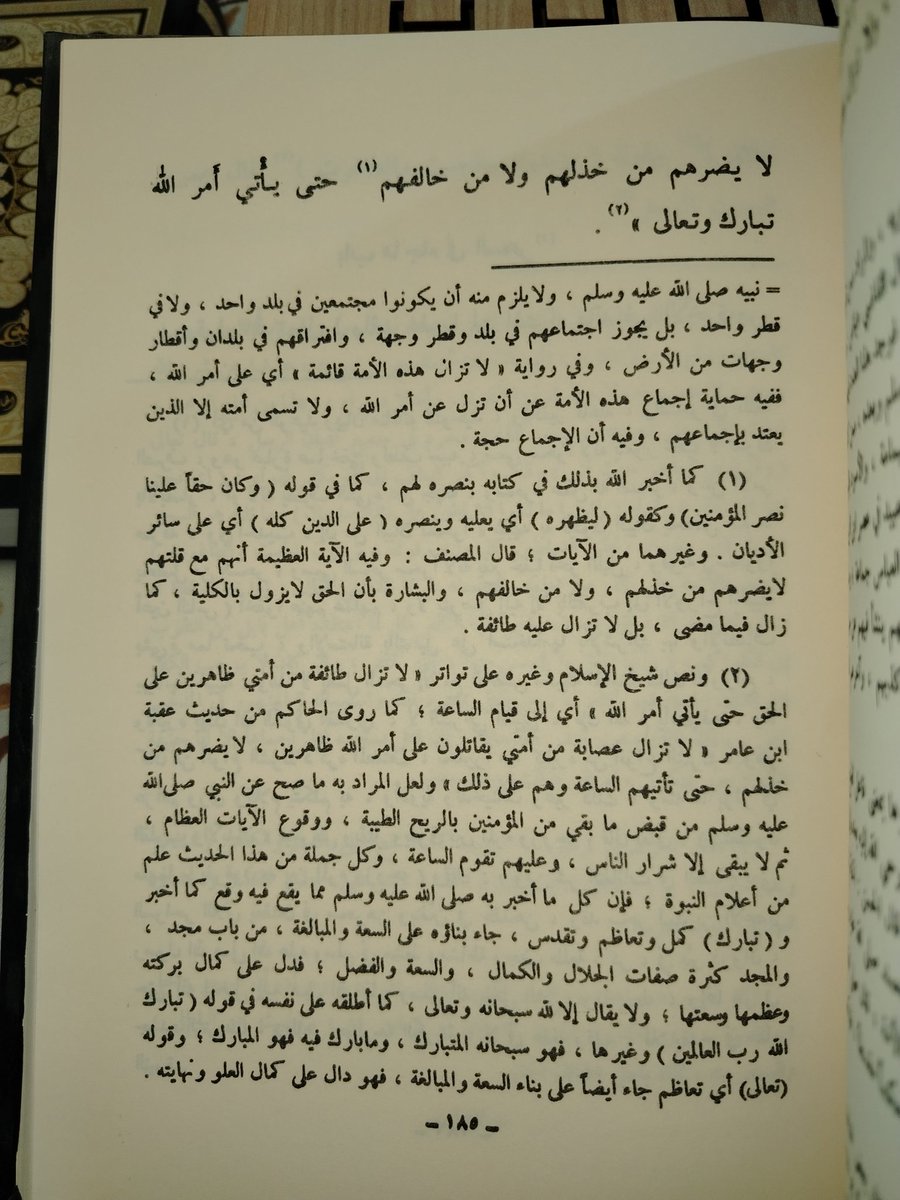 لا يضرهم من خذلهم ولا من خالفهم(١) حتى يأتي أمر الله
تبارك وتعالى »(٢) .
= نبيه صلى الله عليه وسلم ، ولا يلزم منه أن يكونوا مجتمعين في بلد واحد ، ولا في
قطر واحد ، بل يجوز اجتماعهم في بلد وقطر وجهة ، وافتراقهم في بلدان وأقطار
وجهات من الأرض ، وفي رواية « لا تزال هذه الأمة قائمة » أي على أمر الله ،
ففيه حماية إجماع هذه الأمة عن أن تزل عن أمر الله ، ولا تسمى أمته إلا الذين
يعتد بإجماعهم ، وفيه أن الإجماع حجة .
(١) كما أخبر الله بذلك في كتابه بنصره لهم ، كما في قوله ( وكان حقاً علينا
نصر المؤمنين) وكقوله ( ليظهره ) أي يعليه وينصره ( على الدين كله ) أي على سائر
الأديان . وغيرهما من الآيات ؛ قال المصنف : وفيه الآية العظيمة أنهم مع قلتهم
لايضرهم من خذلهم ، ولا من خالفهم ، والبشارة بأن الحق لايزول بالكلية ، كما
زال فيما مضى ، بل لا تزال عليه طائفة .
(٢) ونص شيخ الإسلام وغيره على تواتر « لا تزال طائفة من أمتي ظاهرين على
الحق حتى يأتي أمر الله » أي إلى قيام الساعة ؛ كما روى الحاكم من حديث عقبة
ابن عامر « لا تزال عصابة من أمتي يقاتلون على أمر الله ظاهرين ، لا يضرهم من
خذلهم ، حتى تأتيهم الساعة وهم على ذلك » ولعل المراد به ما صح عن النبي صلى الله
عليه وسلم من قبض ما بقي من المؤمنين بالريح الطيبة ، ووقوع الآيات العظام ،
ثم لا يبقى إلا شرار الناس ، وعليهم تقوم الساعة ، وكل جملة من هذا الحديث علم
من أعلام النبوة ؛ فإن كل ما أخبر به صلى الله عليه وسلم مما يقع فيه وقع كما أخبر
و ( تبارك ) كمل وتعاظم وتقدس ، جاء بناؤه على السعة والمبالغة ، من باب مجد ،
والمجد كثرة صفات الجلال والكمال ، والسعة والفضل ؛ فدل على كمال بركته
وعظمها وسعتها ؛ ولا يقال إلا لله سبحانه وتعالى ، كما أطلقه على نفسه في قوله ( تبارك
الله رب العالمين ) وغيرها ، فهو سبحانه المتبارك ، ومابارك فيه فهو المبارك ؛ وقوله
(تعالى) أي تعاظم جاء أيضاً على بناء السعة والمبالغة ، فهو دال على كمال العلو ونهايته .
ـ ١٨٥ ـ